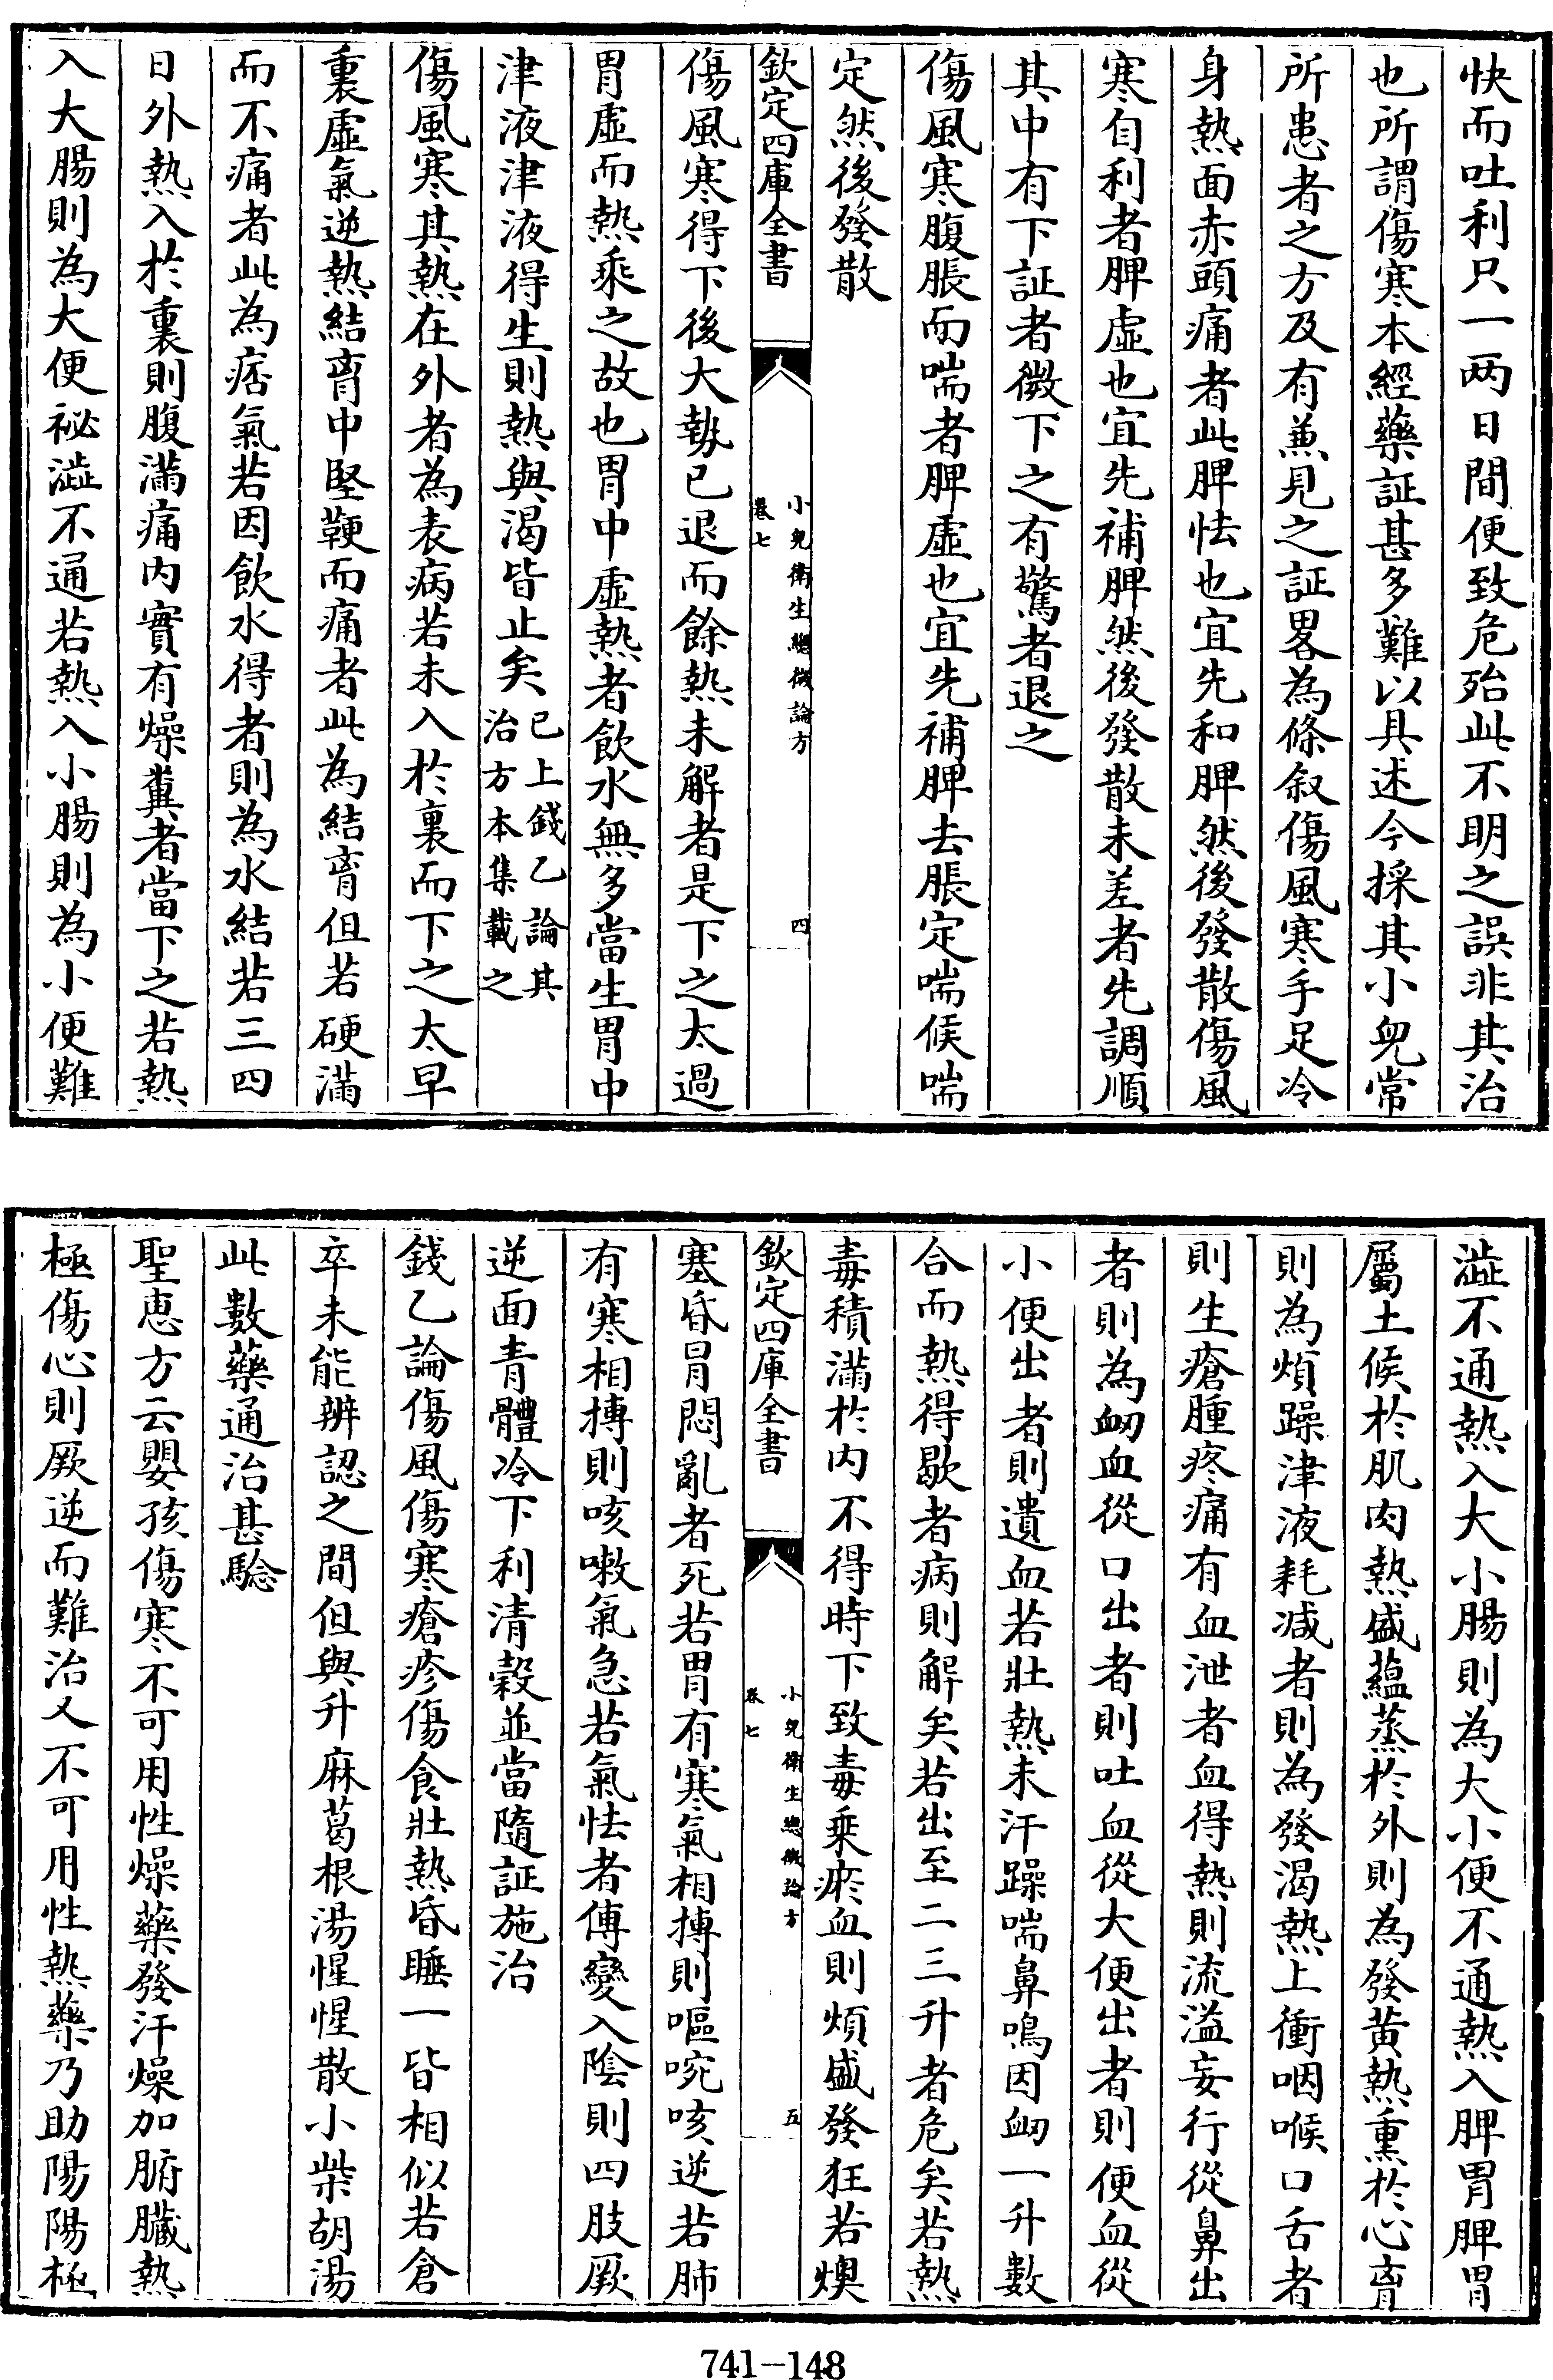 快而吐利只一两日間便致危殆此不明之誤非其治
也所謂傷寒本經藥証甚多難以具述今採其小兒常
所患者之方及有兼見之証畧為條叙傷風寒手足冷
身熱面赤頭痛者此脾怯也宜先和脾然後發散傷風
寒自利者脾虛也宜先補脾然後發散未差者先調順
其中有下証者微下之有驚者退之
傷風寒腹脹而喘者脾虛也宜先補脾去脹定喘候喘
定然後發散
欽定四庫全書
小兒衛生總微論方
卷七
四
傷風寒得下後大勢已退而餘熱未解者是下之太過
胃虛而熱乘之故也胃中虛熱者飲水無多當生胃中
津液津液得生則熱與渴皆止矣已上錢乙論其治方本集載之
傷風寒其熱在外者為表病若未入於裏而下之太早
裏虛氣逆熱結胷中堅鞕而痛者此為結胷但若硬滿
而不痛者此為痞氣若因飲水得者則為水結若三四
日外熱入於裏則腹滿痛内實有燥糞者當下之若熱
入大腸則為大便祕澁不通若熱入小腸則為小便難
澁不通熱入大小腸則為大小便不通熱入脾胃脾胃
屬土候於肌肉熱盛蘊蒸於外則為發黄熱熏於心胷
則為煩躁津液耗减者則為發渴熱上衝咽喉口舌者
則生瘡腫疼痛有血泄者血得熱則流溢妄行從鼻出
者則為衂血從口出者則吐血從大便出者則便血從
小便出者則遺血若壯熱未汗躁喘鼻鳴因衂一升數
合而熱得歇者病則解矣若出至二三升者危矣若熱
毒積滿於内不得時下致毒乗瘀血則煩盛發狂若燠
欽定四庫全書
小兒衛生總微論方
卷七
五
塞昏冒悶亂者死若胃有寒氣相搏則嘔啘咳逆若肺
有寒相摶則咳嗽氣急若氣怯者傳變入陰則四肢厥
逆面青體冷下利清穀並當隨証施治
錢乙論傷風傷寒瘡疹傷食壯熱昏睡一皆相似若倉
卒未能辨認之間但與升麻葛根湯惺惺散小柴胡湯
此數藥通治甚驗
聖惠方云嬰孩傷寒不可用性燥藥發汗燥加腑臟熱
極傷心則厥逆而難治又不可用性熱藥乃助陽陽極
741-148